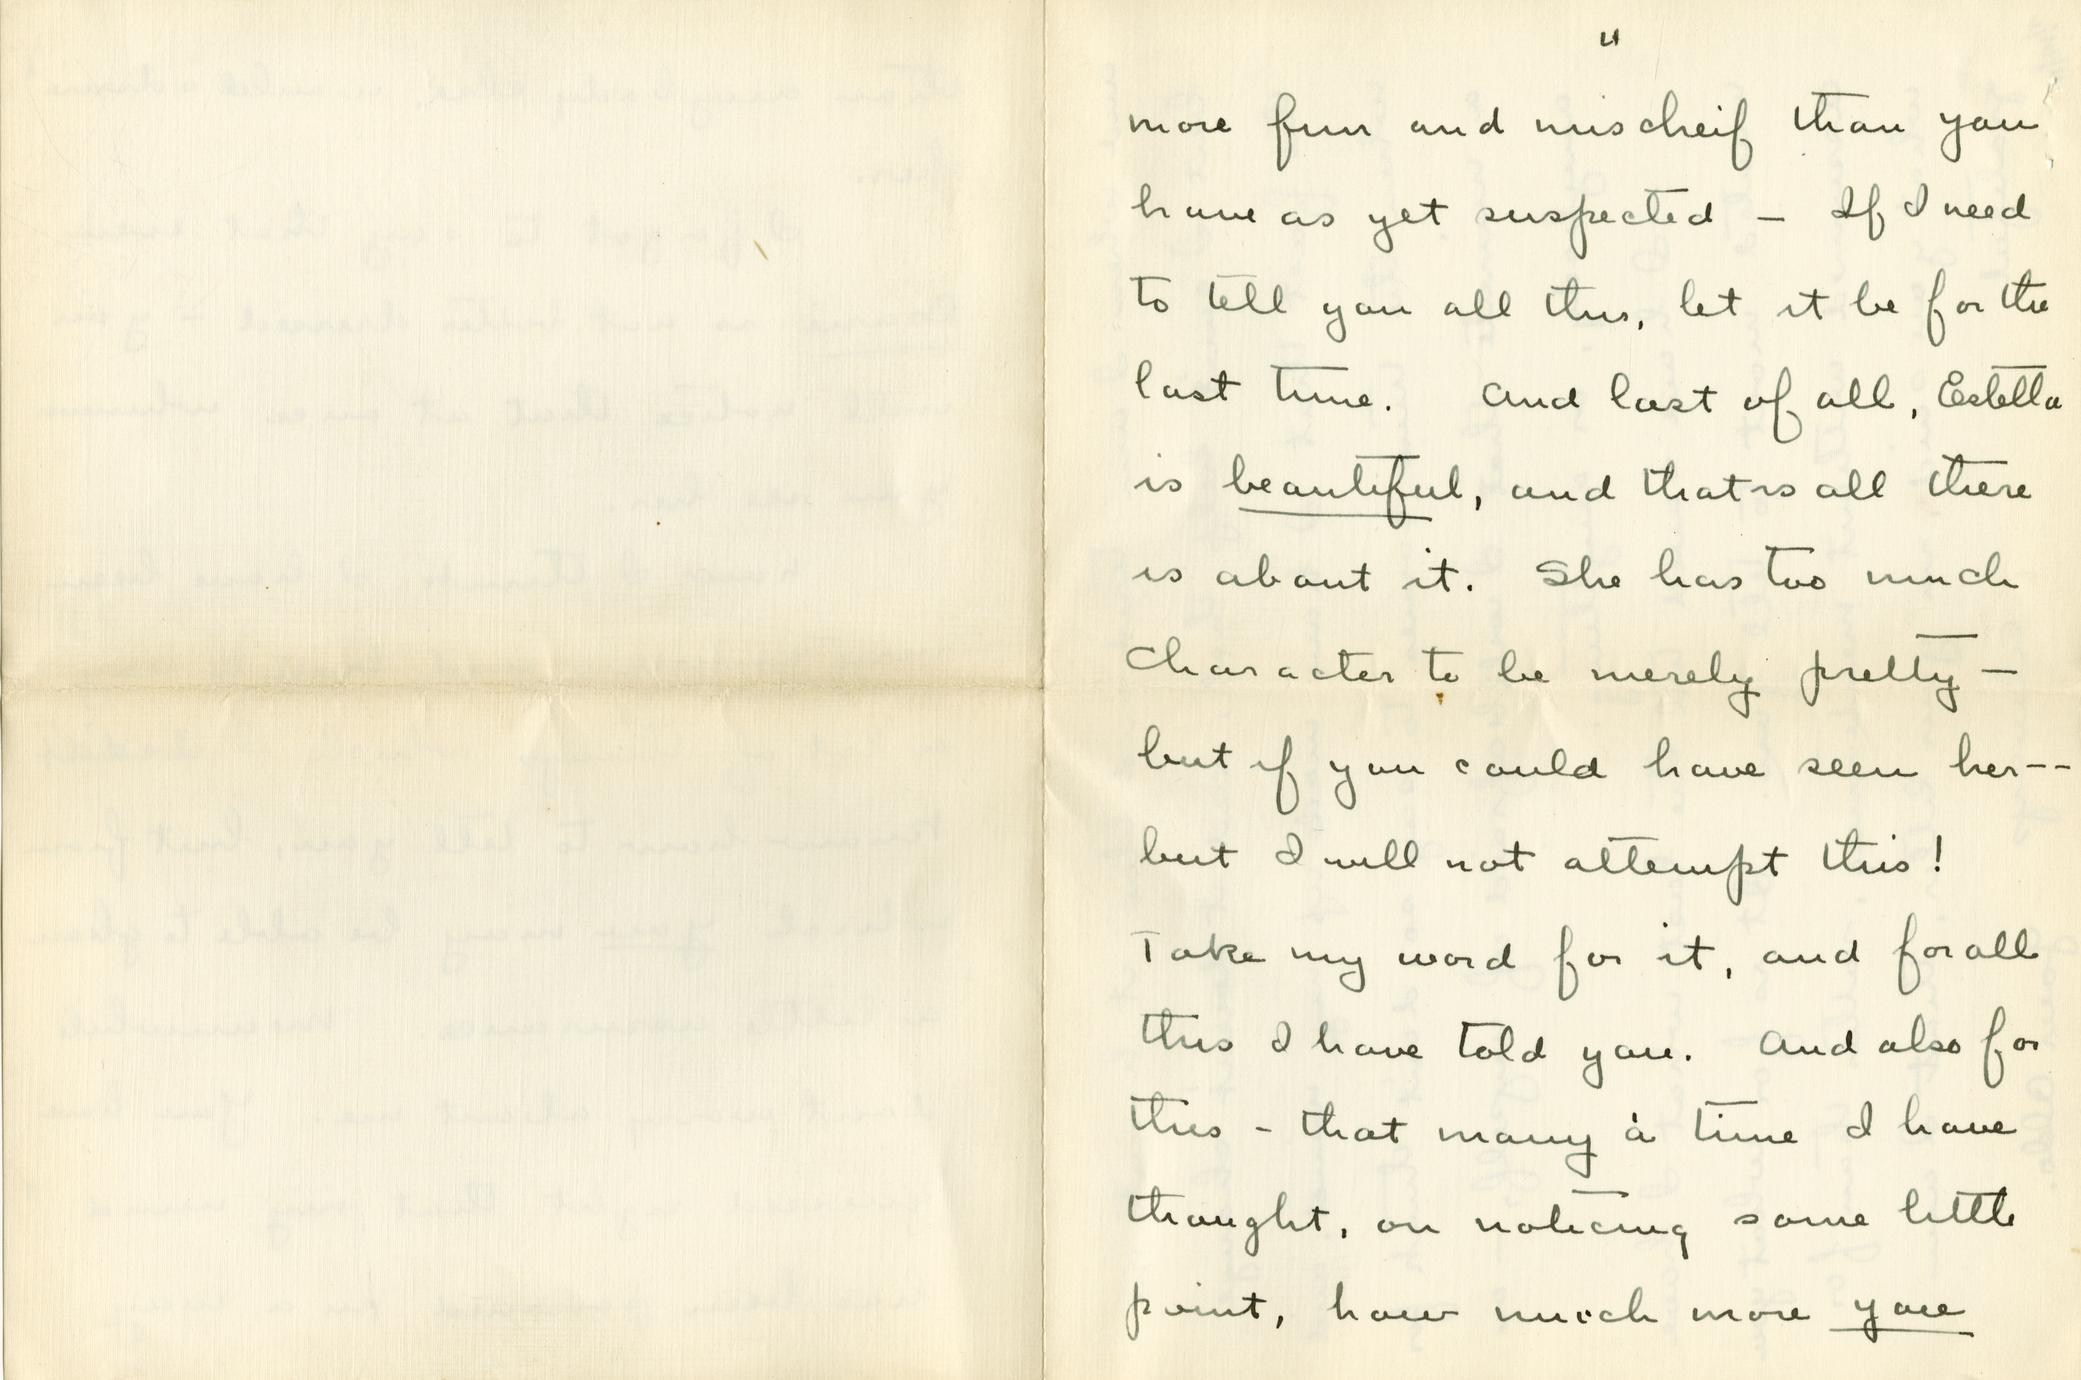 "
more fun and mischeif than you
have as yet suspected — If I need
to tell you all this, let it be for the
last time. And last of all, Estella
is beautiful, and that is all there
is about it. She has too much
character to be merely pretty —
but if you could have seen her--
but I will not attempt this!
Take my word for it, and for all
this I have told you. And also for
this - that many a time I have
thought, on noticing some little
point, how much more you